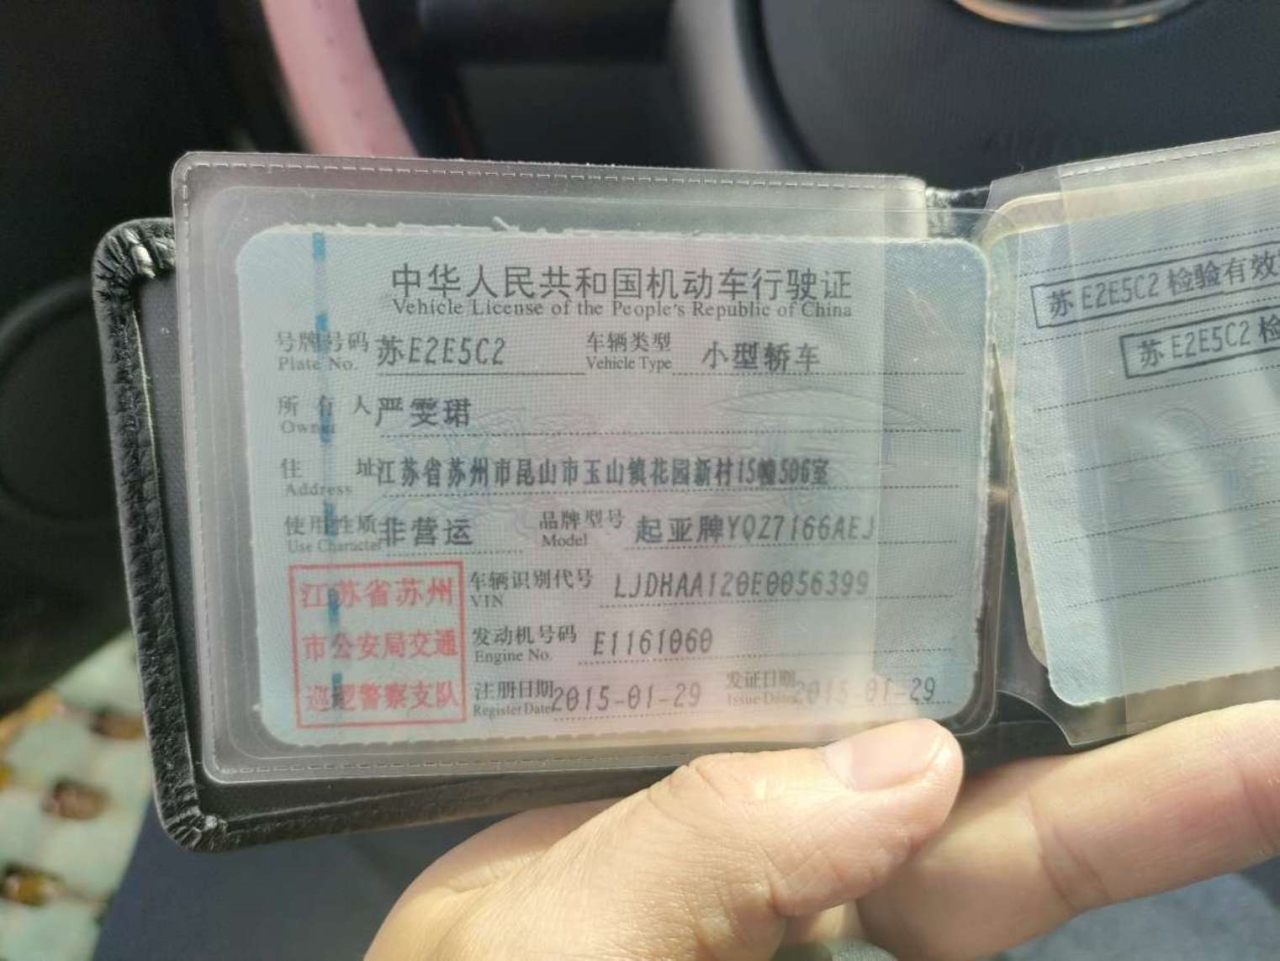 中华人民共和国机动车行驶证
Vehicle License of the People's Republic of China
号牌号码 苏E2E5C2 车辆类型 小型轿车
Plate No. Vehicle Type
所有人 严雯珺
Owner
住址 江苏省苏州市昆山市玉山镇花园新村15幢506室
Address
使用性质 非营运 品牌型号 起亚牌YQZ7166AEJ
Use Character Model
车辆识别代号 LJDHAA120E0056399
VIN
发动机号码 E1161060
Engine No.
注册日期 2015-01-29 发证日期 2015-01-29
Register Date Issue Date
江苏省苏州
市公安局交通
巡逻警察支队
苏E2E5C2 检验有效
苏E2E5C2 检